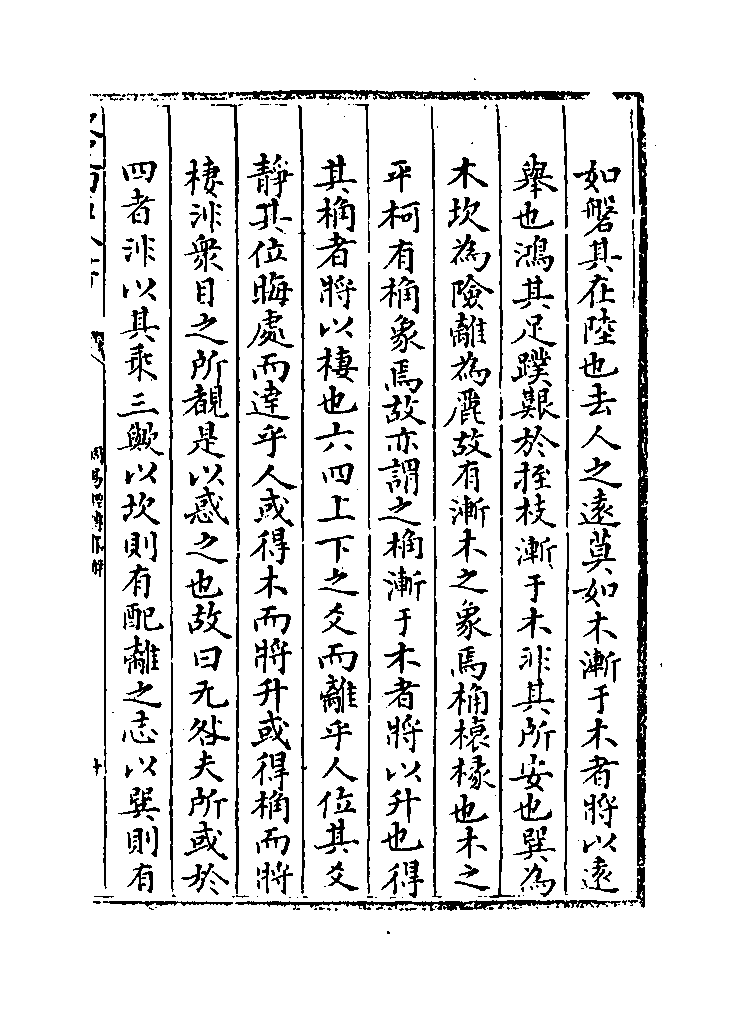 如磐其在陸也去人之遠莫如木漸于木者將以遠
舉也鴻其足蹼艱於拰枝漸于木非其所安也巽為
木坎為險離為麗故有漸木之象焉桷榱椽也木之
平柯有桷象焉故亦謂之桷漸于木者將以升也得
其桷者將以棲也六四上下之爻而離乎人位其爻
靜其位晦處而違乎人或得木而將升或得桷而將
棲非衆目之所覩是以惑之也故曰无咎夫所或於
四者非以其乘三歟以坎則有配離之志以巽則有